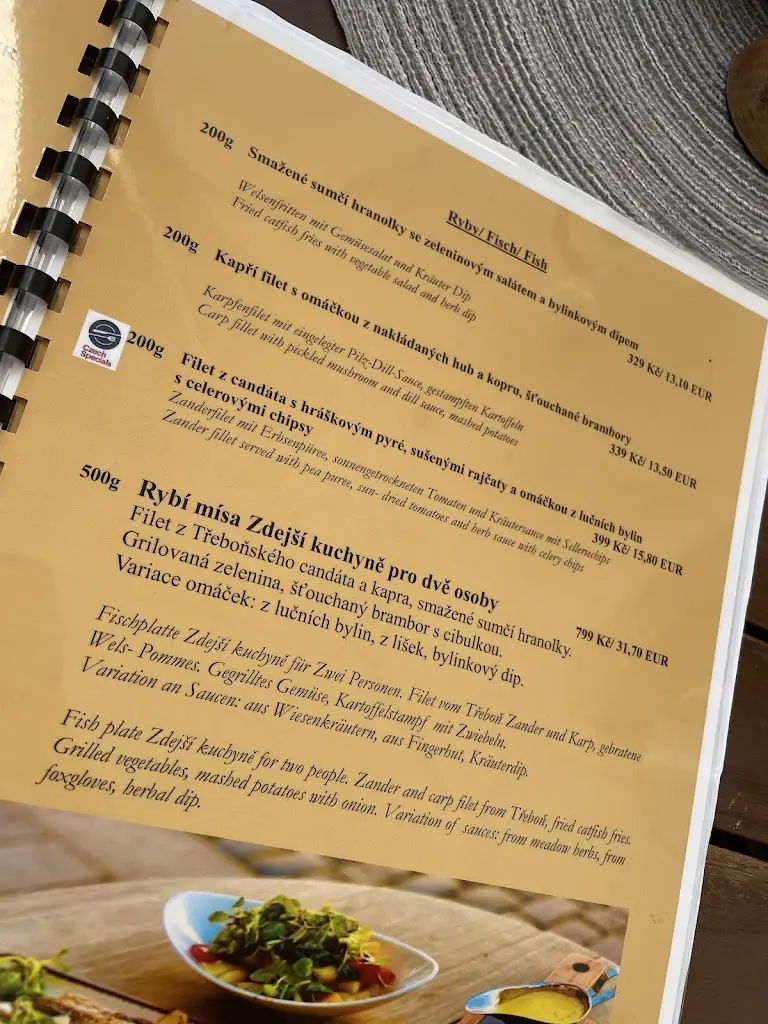 Ryby/ Fisch/ Fish
200g Smažené sumčí hranolky se zeleninovým salátem a bylinkovým dipem
329 Kč/ 13,10 EUR
Welsenfritten mit Gemüsesalat und Kräuter Dip
Fried catfish fries with vegetable salad and herb dip
200g Kapří filet s omáčkou z nakládaných hub a kopru, šťouchané brambory
339 Kč/ 13,50 EUR
Karpfenfilet mit eingelegter Pilz-Dill-Sauce, gestampften Kartoffeln
Carp fillet with pickled mushroom and dill sauce, mashed potatoes
Czech
Specials
200g Filet z candáta s hráškovým pyré, sušenými rajčaty a omáčkou z lučních bylin
s celerovými chipsy
399 Kč/ 15,80 EUR
Zanderfilet mit Erbsenpüree, sonnengetrockneten Tomaten und Kräutersauce mit Selleriechips
Zander fillet served with pea puree, sun- dried tomatoes and herb sauce with celery chips
500g Rybí mísa Zdejší kuchyně pro dvě osoby
799 Kč/ 31,70 EUR
Filet z Třeboňského candáta a kapra, smažené sumčí hranolky.
Grilovaná zelenina, šťouchaný brambor s cibulkou.
Variace omáček: z lučních bylin, z lišek, bylinkový dip.
Fischplatte Zdejší kuchyně für Zwei Personen. Filet vom Třeboň Zander und Karp, gebratene
Wels- Pommes. Gegrilltes Gemüse, Kartoffelstampf mit Zwiebeln.
Variation an Saucen: aus Wiesenkräutern, aus Fingerhut, Kräuterdip.
Fish plate Zdejší kuchyně for two people. Zander and carp filet from Třeboň, fried catfish fries.
Grilled vegetables, mashed potatoes with onion. Variation of sauces: from meadow herbs, from
foxgloves, herbal dip.